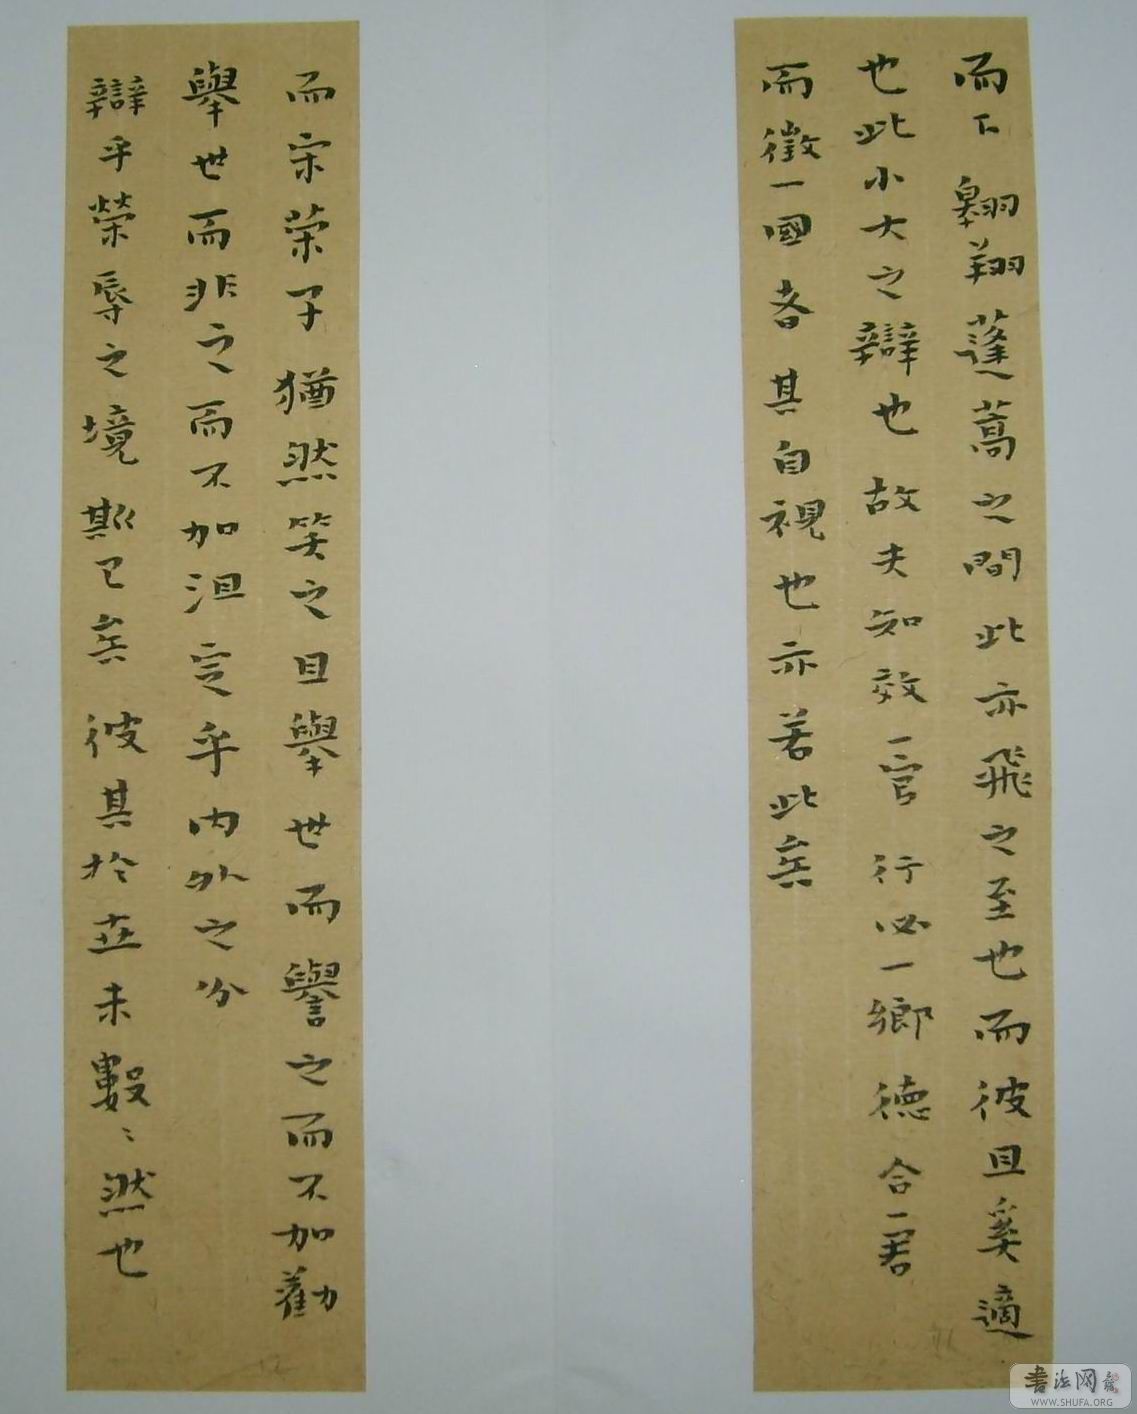 而下翱翔蓬蒿之間此亦飛之至也而彼且奚適
也此小大之辯也故夫知效一官行必一鄉德合一君
而徵一國者其自視也亦若此矣
而宋荣子猶然笑之且舉世而譽之而不加勸
舉世而非之而不加沮定乎内外之分
辯乎榮辱之境斯已矣彼其於世未數〻然也
書法网
WWW.SHUFA.ORG